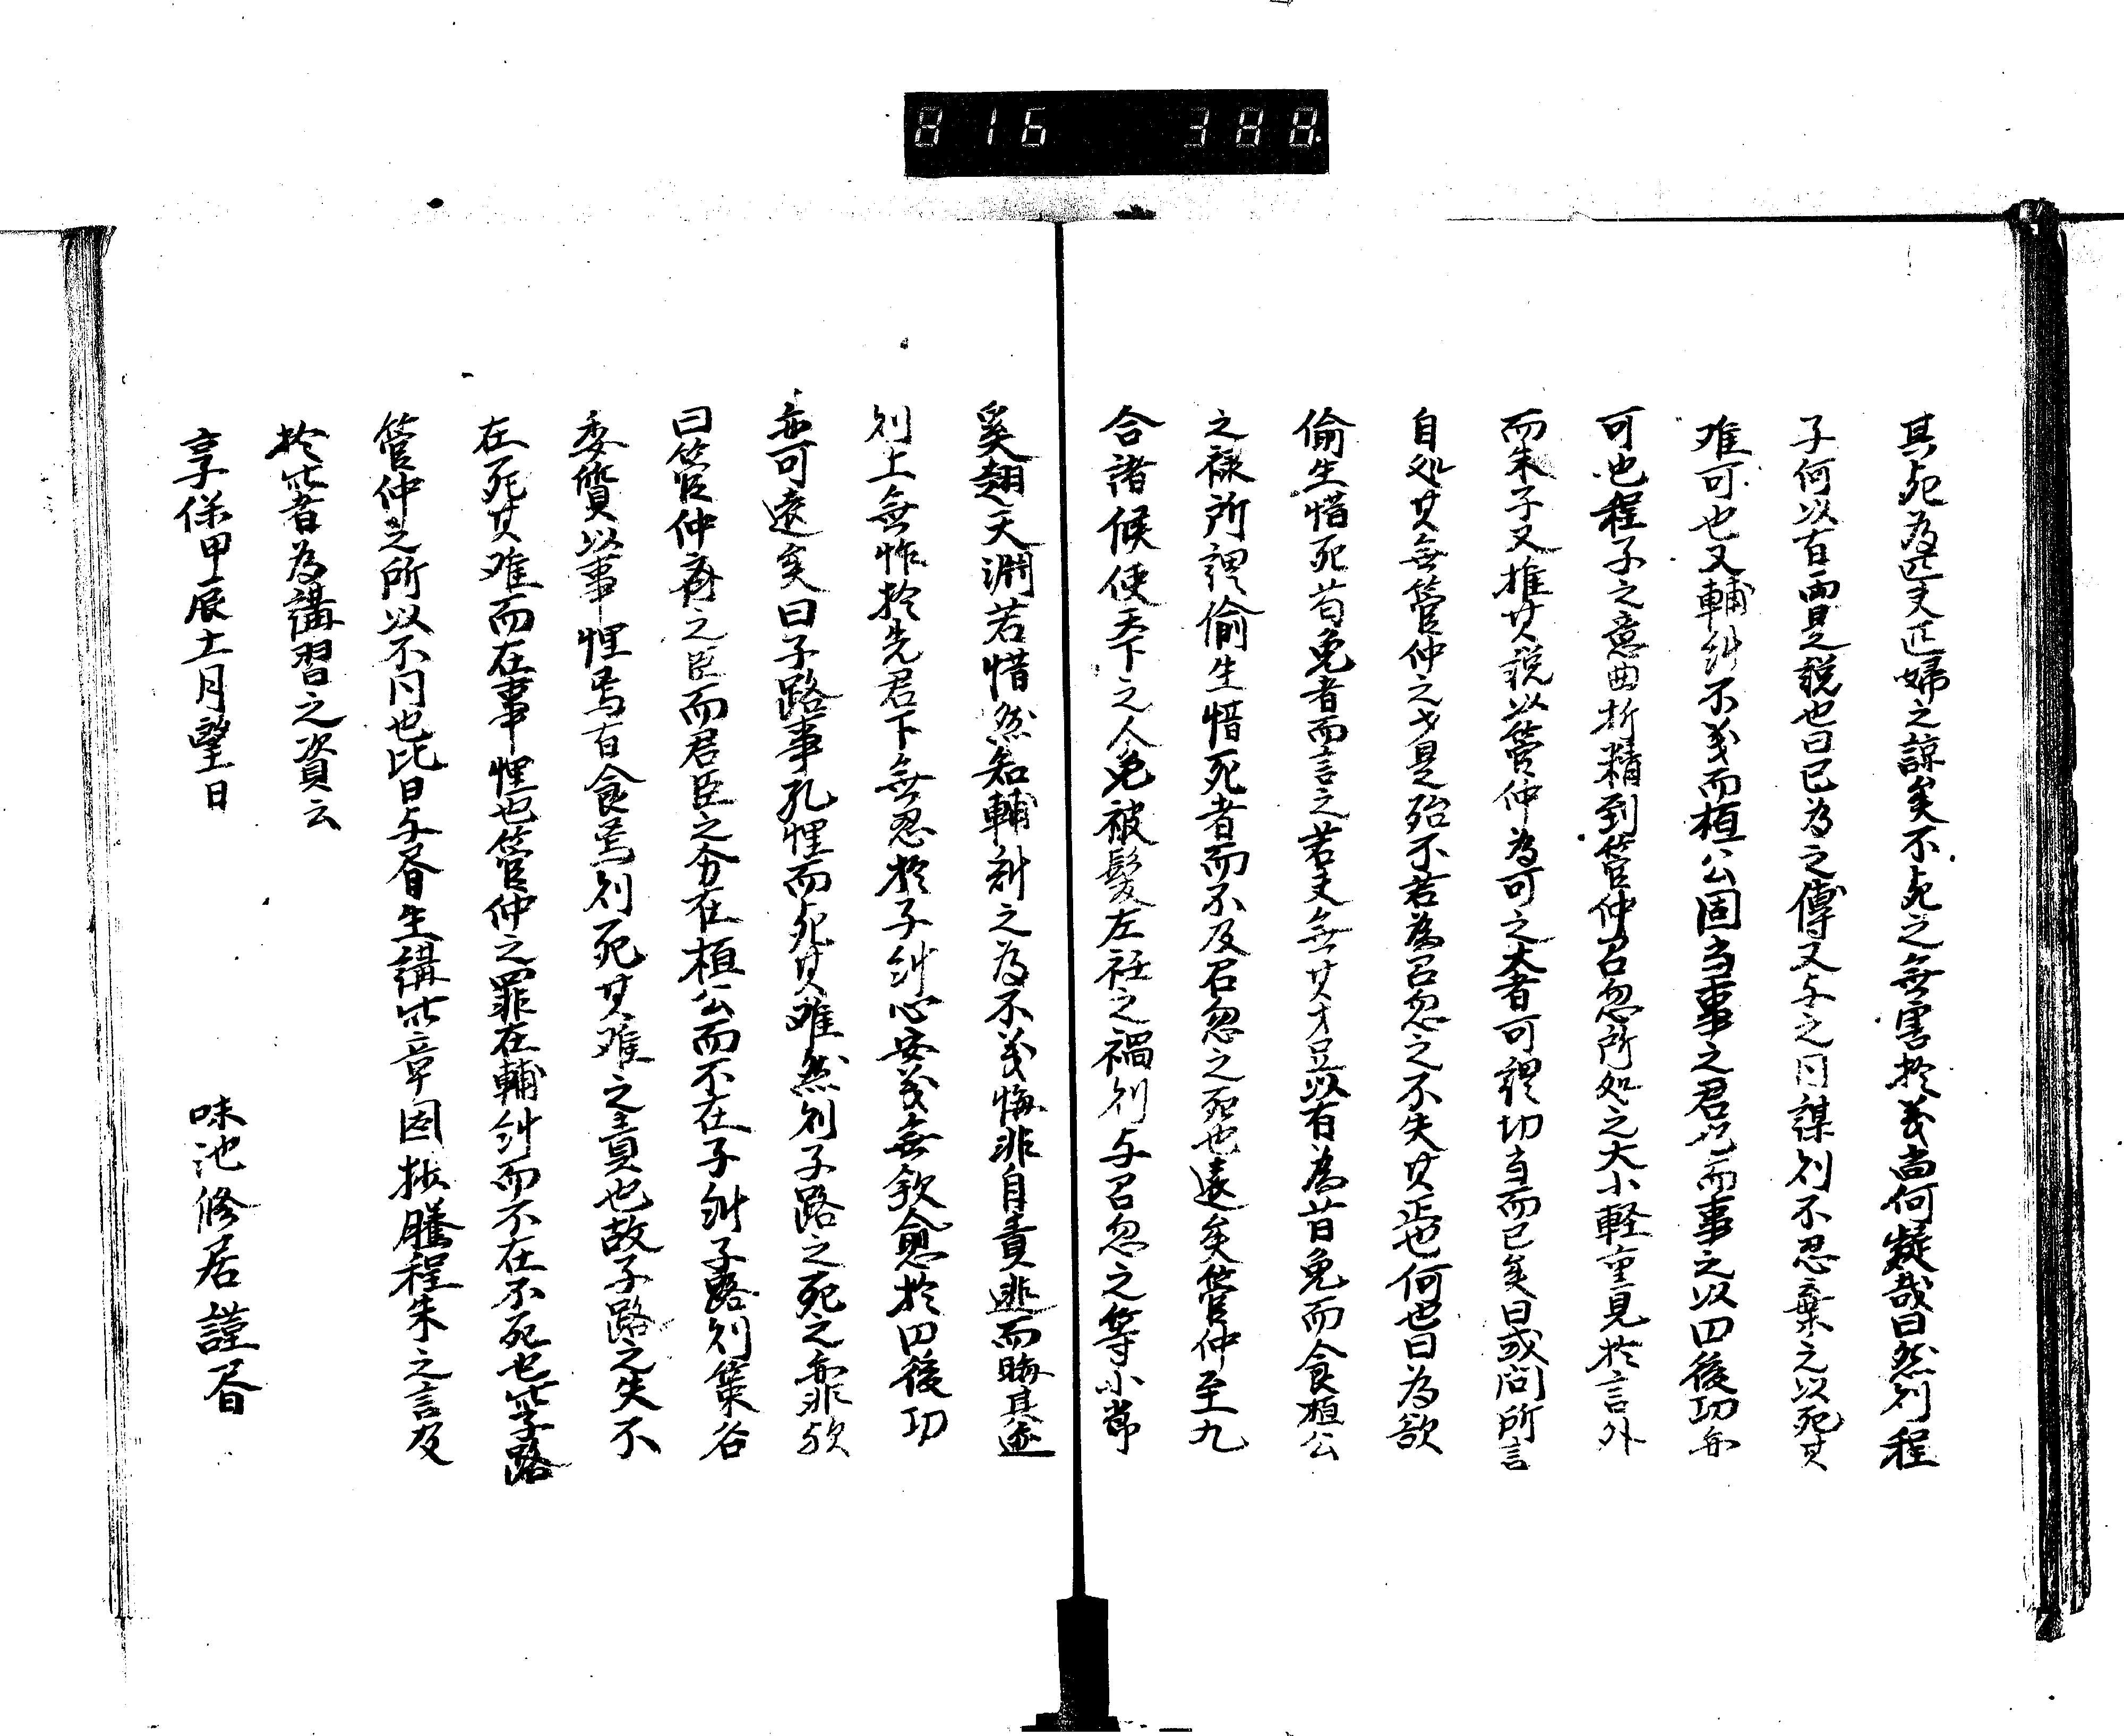 816 388
其死為匹夫匹婦之諒矣不死之無害於義尚何疑哉曰然則程
子何以有両是說也曰已為之傅又与之同謀則不忍棄之以死其
难可也又輔糾不義而桓公固当事之君也而事之以四後功亦
可也程子之意曲折精到管仲召忽所処之大小軽重見於言外
而朱子又推其説以管仲為可之大者可謂切当而已矣曰或問所言
自処其無管仲之才是殆不若為召忽之不失其正也何也曰為欲
偷生惜死苟免者而言之若夫無其才足以有為苟免而食桓公
之禄所謂偷生惜死者而不及召忽之死也遠矣管仲至九
合諸侯使天下之人免被髮左衽之禍則与召忽之等小節
奚翅天淵若惜然知輔糾之為不義悔非自責逃而晦其迹
則上無怍於先君下無忍於子糾心安義無欲愈於四後功
亦可遠矣曰子路事孔悝而死其难然則子路之死之亦非欤
曰管仲齊之臣而君臣之分在桓公而不在子糾子路則策名
委質以事悝焉有食焉則死其难之責也故子路之失不
在死其难而在事悝也管仲之罪在輔糾而不在不死也此子路
管仲之所以不同也比日与眘生講此章因抜騰程朱之言及
於此者為講習之資云
享保甲辰十一月望日
味池修居謹眘